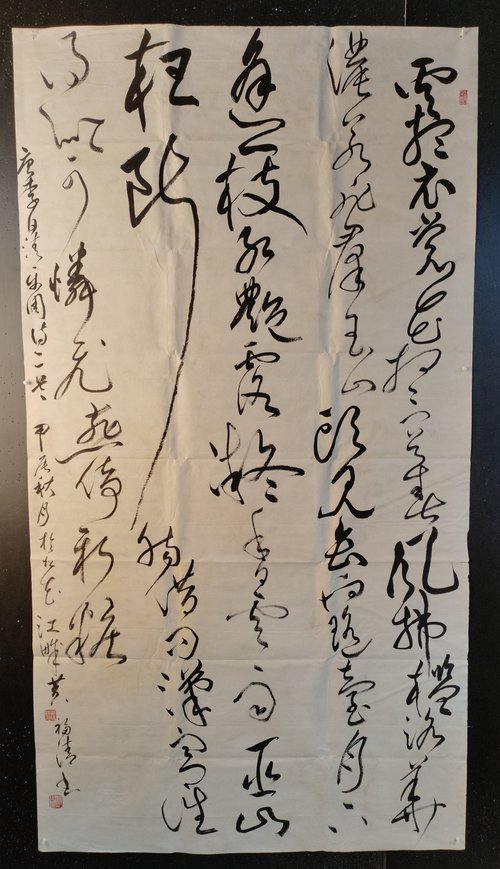 雲想衣裳花想容春風拂檻洛華
濃若非群玉山頭見會向瑤臺月下
逢一枝紅艷露凝香雲雨巫山
枉斷腸借問漢宮誰
得似可憐飛燕倚新粧
唐李白清平調詩二首 甲辰秋月於松花江畔黄福清书